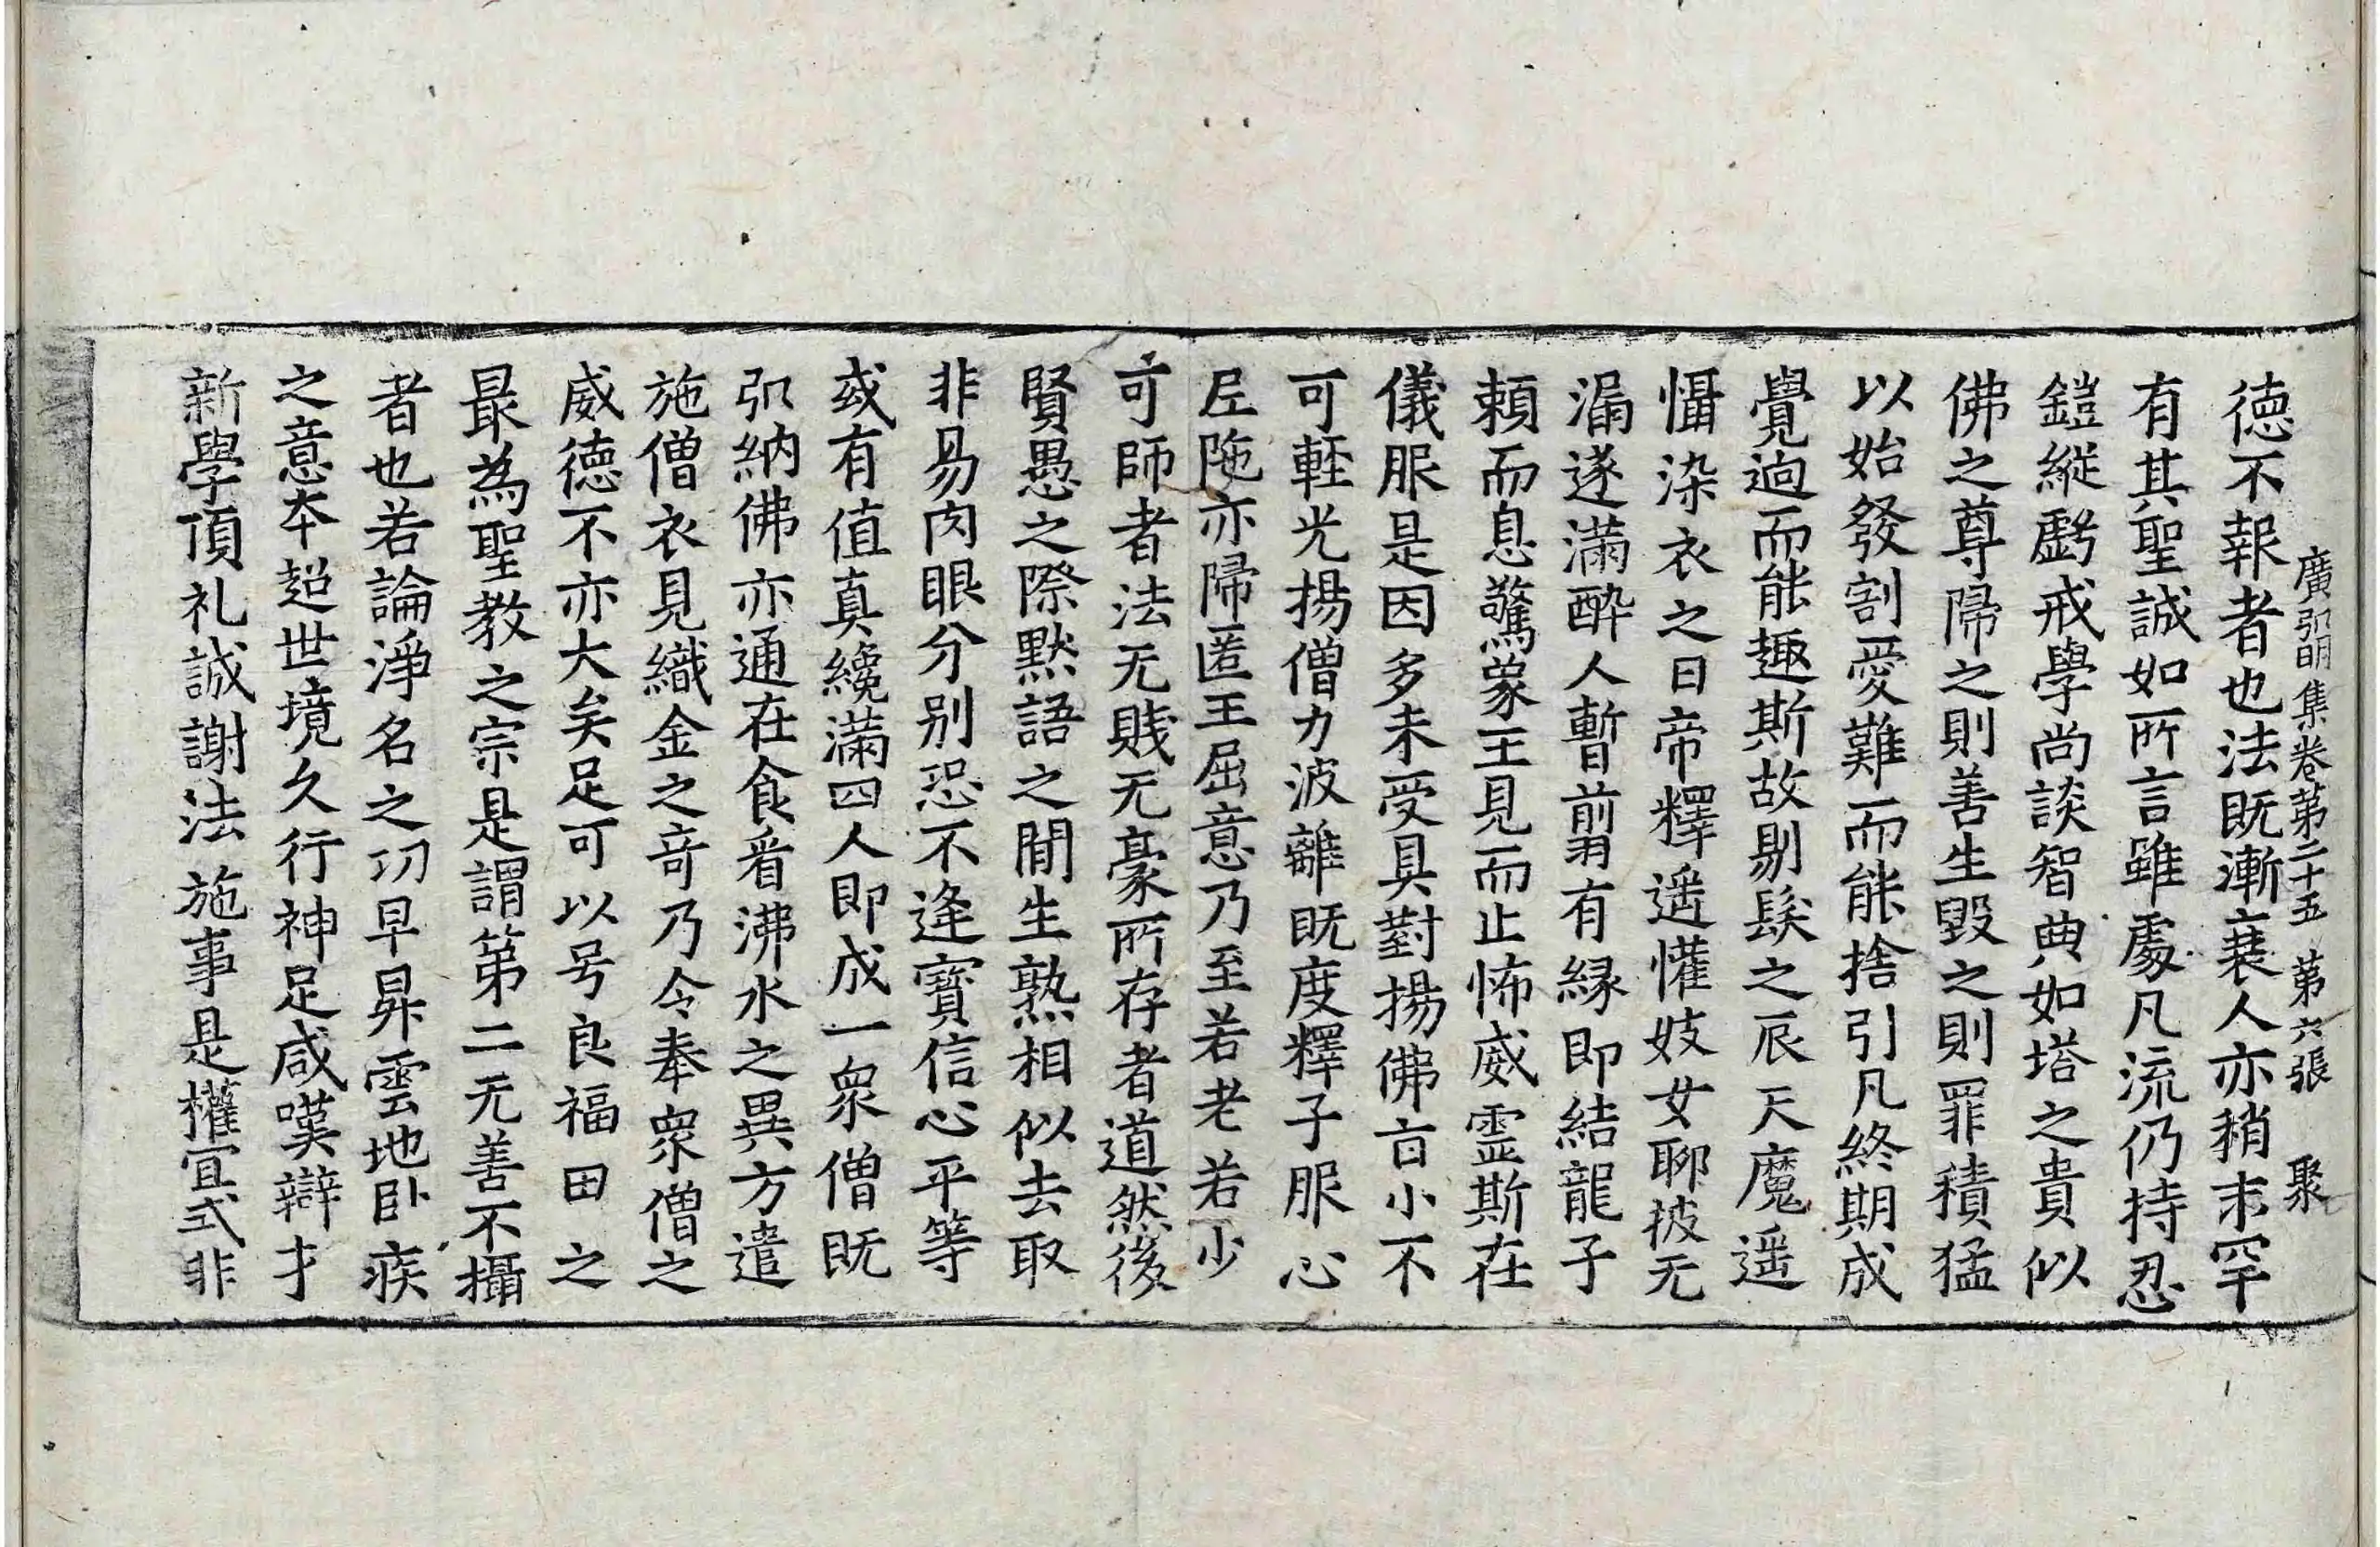 廣弘明集卷苐二十五 苐六張 聚
徳不報者也法既漸衰人亦稍末罕
有其聖誠如所言雖處凡流仍持忍
鎧縱虧戒學尚談智典如塔之貴似
佛之尊歸之則善生毀之則罪積猛
以始發割愛難而能捨引凡終期成
覺逈而能趣斯故剔髮之辰天魔遥
懾染衣之日帝釋遥懽妓女聊披无
漏遂滿酔人暫翦有縁即結龍子
頼而息驚象王見而止怖威霊斯在
儀服是因多未受具對揚佛旨小不
可軽光揚僧力波離既度釋子服心
尼陁亦歸匿王屈意乃至若老若少
可師者法无賎无豪所存者道然後
賢愚之際黙語之間生熟相似去取
非易肉眼分别恐不逢寶信心平等
或有值真纔滿四人即成一衆僧既
弘納佛亦通在食看沸水之異方遣
施僧衣見織金之竒乃令奉衆僧之
威徳不亦大矣足可以号良福田之
最為聖教之宗是謂苐二无善不攝
者也若論淨名之功早昇雲地卧疾
之意本超世境久行神足咸嘆辯才
新學頂礼誠謝法施事是權冝式非